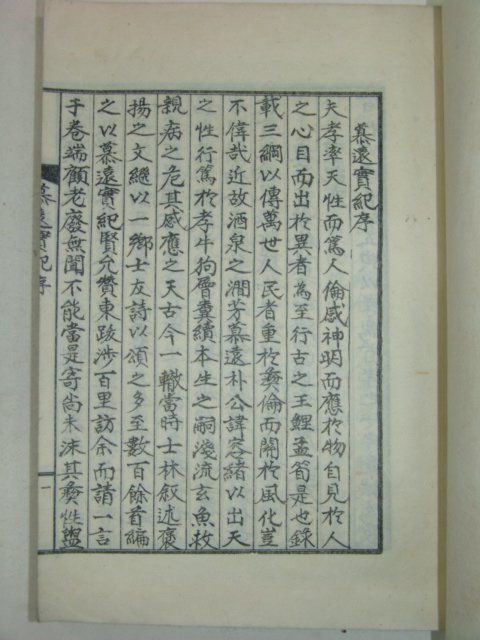 慕遠實紀序
夫孝率天性而篤人倫感神明而應於物自見於人
之心目而出於異者為至行古之王鯉孟筍是也錄
載三綱以傳萬世人民者重於彜倫而關於風化豈
不偉哉近故酒泉之澗芳慕遠朴公諱容緒以出天
之性行篤於孝牛狗嘗糞續本生之嗣淺流玄魚救
親病之危其感應之天古今一轍當時士林叙述褒
揚之文繼以一鄉士友詩以頌之多至數百餘首編
之以慕遠實紀賢允贊東跋涉百里訪余而請一言
于卷端顧老廢無聞不能當是寄尚未沫其彜性盥
慕遠實紀序
一